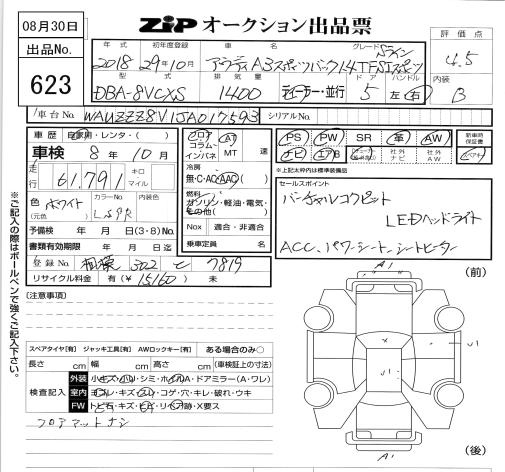 08月30日
ZIP オークション出品票
出品No.
623
年式 初年度登録 車名 グレード Sライン
2018 29年10月 アウディA3スポーツバック1.4TFSIスポーツ
型式 排気量 ドア ハンドル
DBA-8VCXS 1400 ディーラー・並行 5 左・右
評価点
4.5
内装
B
車台No. WAUZZZ8V1JA017593 シリアルNo.
車歴 自家用・レンタ・( )
車検 8年10月
走行 61,791 キロ マイル
色 ホワイト カラーNo. LS9R 内装色
(元色)
予備検 年 月 日(3・8)No.
書類有効期限 年 月 日迄
登録No. 相模 302 と 7819
リサイクル料金 有(¥15,160) 未
フロア コラム・インパネ AT MT 速
冷房
無・C・AC・AAC( )
燃料
ガソリン・軽油・電気・その他( )
Nox 適合・非適合
乗車定員 名
PS PW SR 革 AW
ナビ エアB 社外ナビ 社外AW
新車時保証書
スペアキー
※上記太枠内は標準装備品
セールスポイント
バーチャルコクピット
LEDヘッドライト
ACC、パワーシート、シートヒーター
※ご記入の際はボールペンで強くご記入下さい。
[注意事項]
スペアタイヤ[有] ジャッキ工具[有] AWロックキー[有] ある場合のみ○
長さ cm 幅 cm 高さ cm (車検証上の寸法)
検査記入
外装 小キズ・小U・シミ・ホイルA・ドアミラー(A・ワレ)
室内 ヨゴレ・キズ・スレ・コゲ・穴・キレ・破れ・ウキ
FW トビ石・キズ・ヒビ・リペア跡・X要ス
フロアマットナシ
(前)
A1
U1
U1
A1
(後)